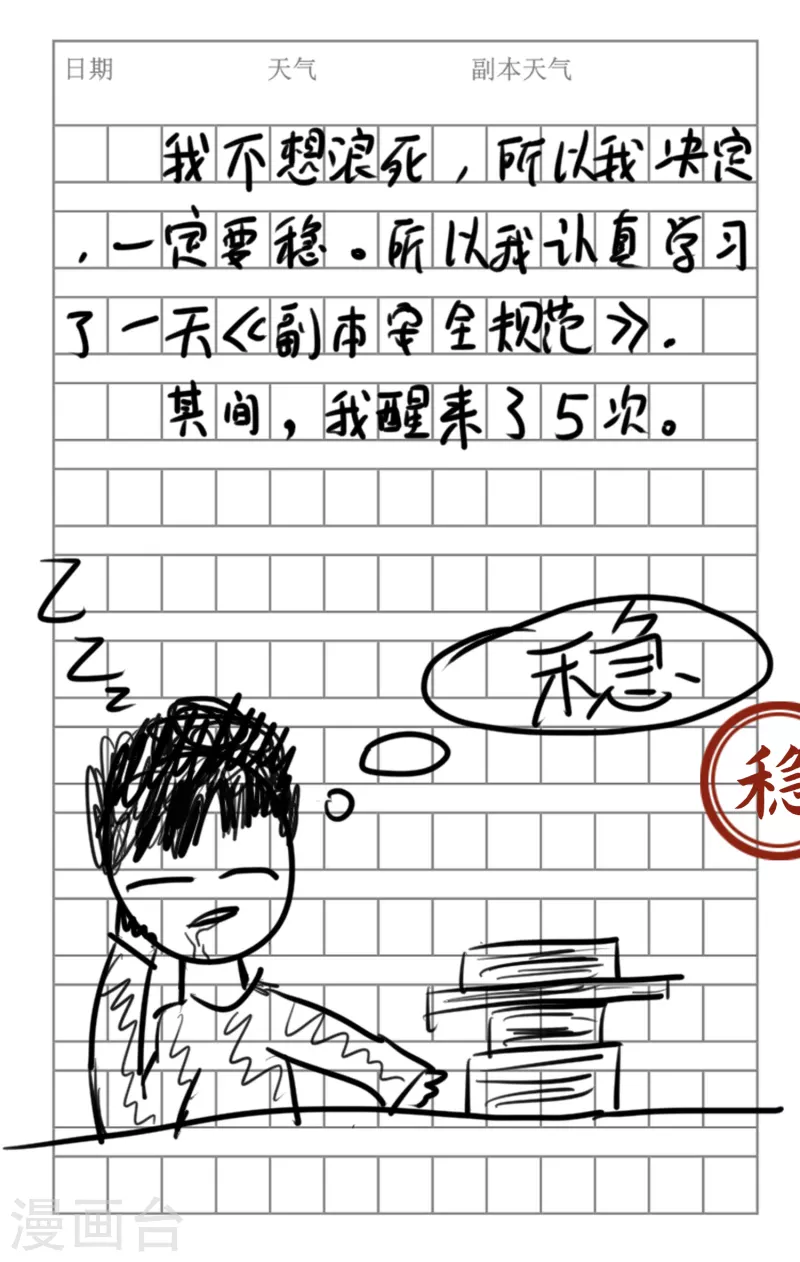 日期 天气 副本天气
我不想浪死，所以我决定
，一定要稳。所以我认真学习
了一天《副本安全规范》.
其间，我醒来了5次。
Z
Z
Z
稳
稳
漫画台